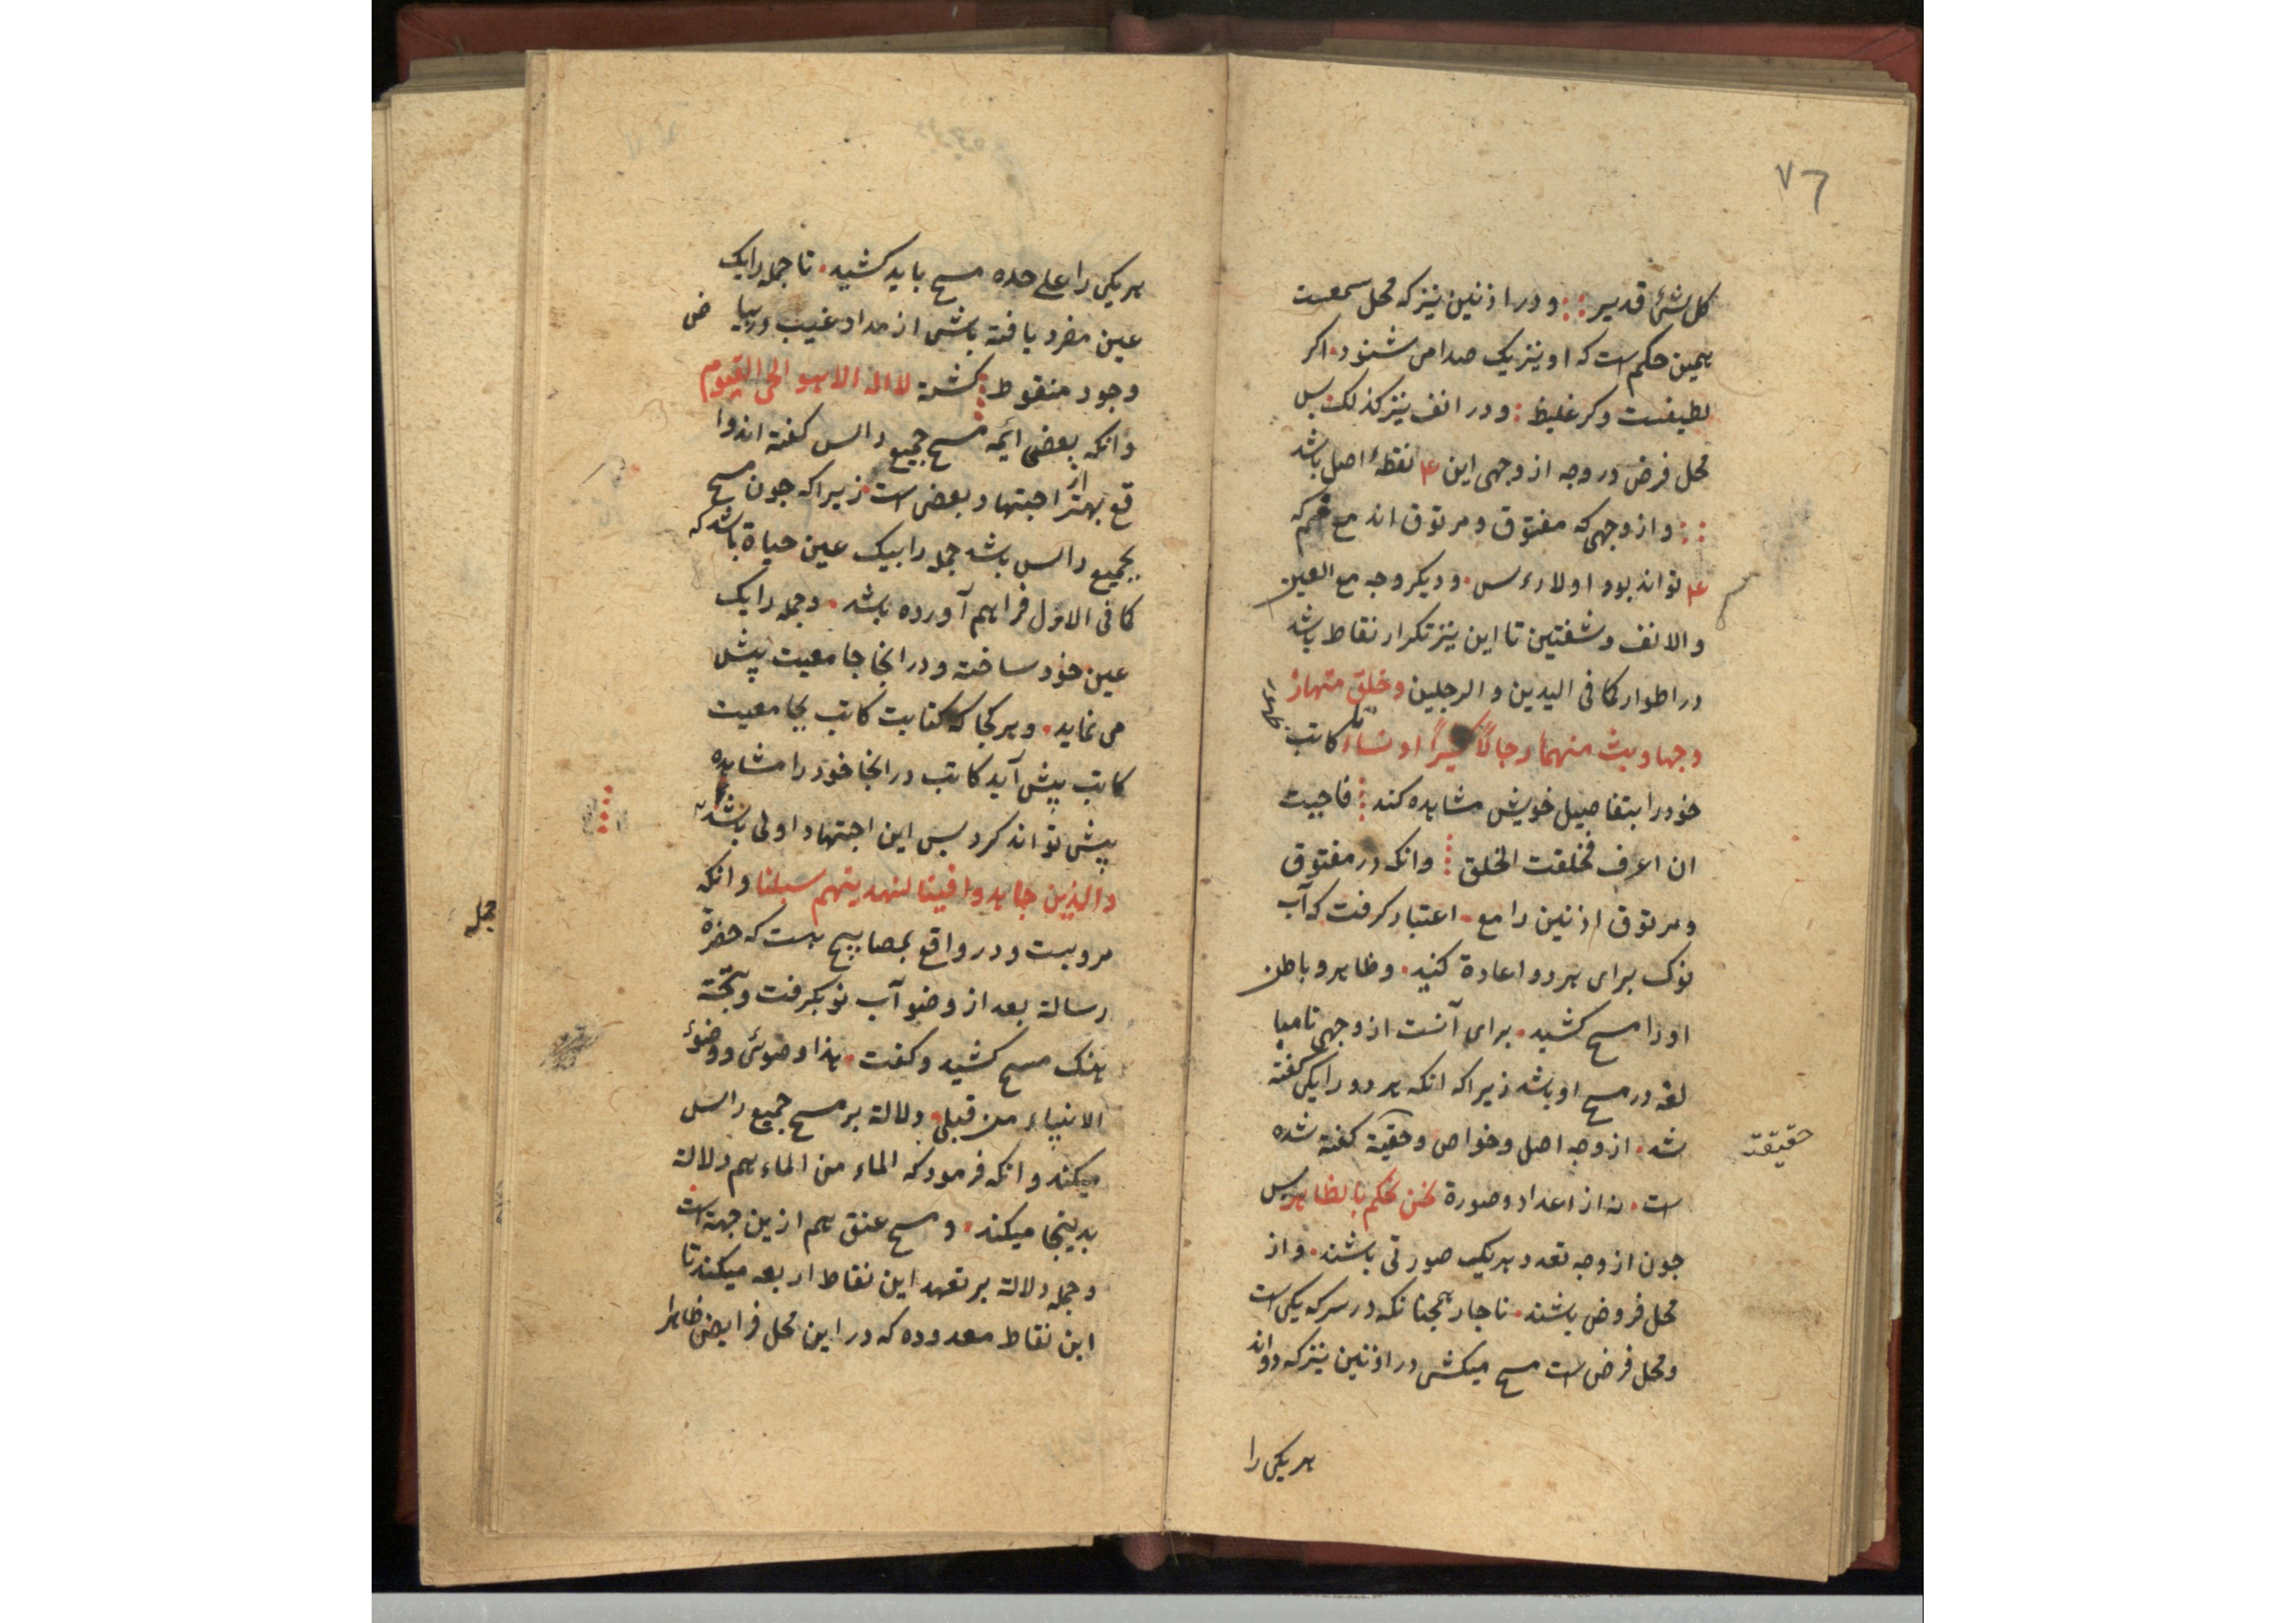 ٧٦
كل شئ قدير :: ودر اذنين نيز كه محل سمعست
همين حكم است كه او نيز يك صدا مى شنود . اكر
لطيفست وكر غليظ : ودر انف نيز كذلك بس
محل فرض در وجه از وجهى اين ٤ نقطهٔ اصل باشد
:: واز وجهى كه مفتوق ومرتوق اند مع فم كه
٤ تواند بود اولا رءس . وديكر وجه مع العين
والانف وشفتين تا اين نيز تكرار نقاط باشد
در اطوار كما فى اليدين والرجلين وخلق منها ز
وجها وبث منهما رجالا كثيرًا ونساءً كاتب
خود را بتفاصيل خويش مشاهده كند : فاحببت
ان اعرف فخلقت الخلق : وانكه در مفتوق
ومرتوق اذنين را مع . اعتبار كرفت كه آب
نوك براى هر دو اعادة كنيد . وظاهر وباطن
او را مسح كشيد . براى آنست از وجهى تا مبا
لغه در مسح او باشد زيرا كه انكه هر دو را يكى كفته
شد . از وجه اصل وخواص وحقية كفته شده
حقيقة
است . نه از اعداد وصورة نحن نحكم بالظاهر بس
جون از وجه تعدد هر يك صورتى باشند . واز
محل فروض باشند . ناجار همجنانكه در سر كه يكى است
ومحل فرض است مسح ميكشى در اذنين نيز كه دو اند
هر يكى را
هر يكى را على حده مسح بايد كشيد . تا جمله را يك
عين مفرد يافته باشى از مداد غيب در بيا ض
وجود منقوط : كشته لا اله الا هو الحى القيوم
وانكه بعضى ائمه مسح جميع رالس كفته اند وا
قع بهتر از اجتهاد بعضى است زيرا كه جون مسح
بجميع رالس باشد جمله را بيك عين حياة باشد كه
كما فى الاول فراهم آورده باشد . وجمله را يك
عين خود ساخته ودر انجا جامعيت پيش
مى نمايد . وهر كجا كه كتابت كاتب بجامعيت
كاتب پيش آيد كاتب در انجا خود را مشاهده
پيش تواند كرد بس اين اجتهاد اولى باشد
والذين جاهدوا فينا لنهدينهم سبلنا وانكه
مرويست ودر واقع بمصابيح هست كه حضرة
رسالة بعد از وضو آب نو بكرفت وبجّته
هنك مسح كشيد وكفت . هذا وضوئى ووضوءُ
الانبياء من قبلى . دلالة بر مسح جميع رالس
ميكند وانكه فرمود كه الماء من الماء هم دلالة
بدينجا ميكند . ومسح عنق هم ازين جهة است
وجمله دلالة بر تعهد اين نقاط اربعه ميكند تا
اين نقاط معدوده كه در اين محل فرايض ظاهرا
جمله